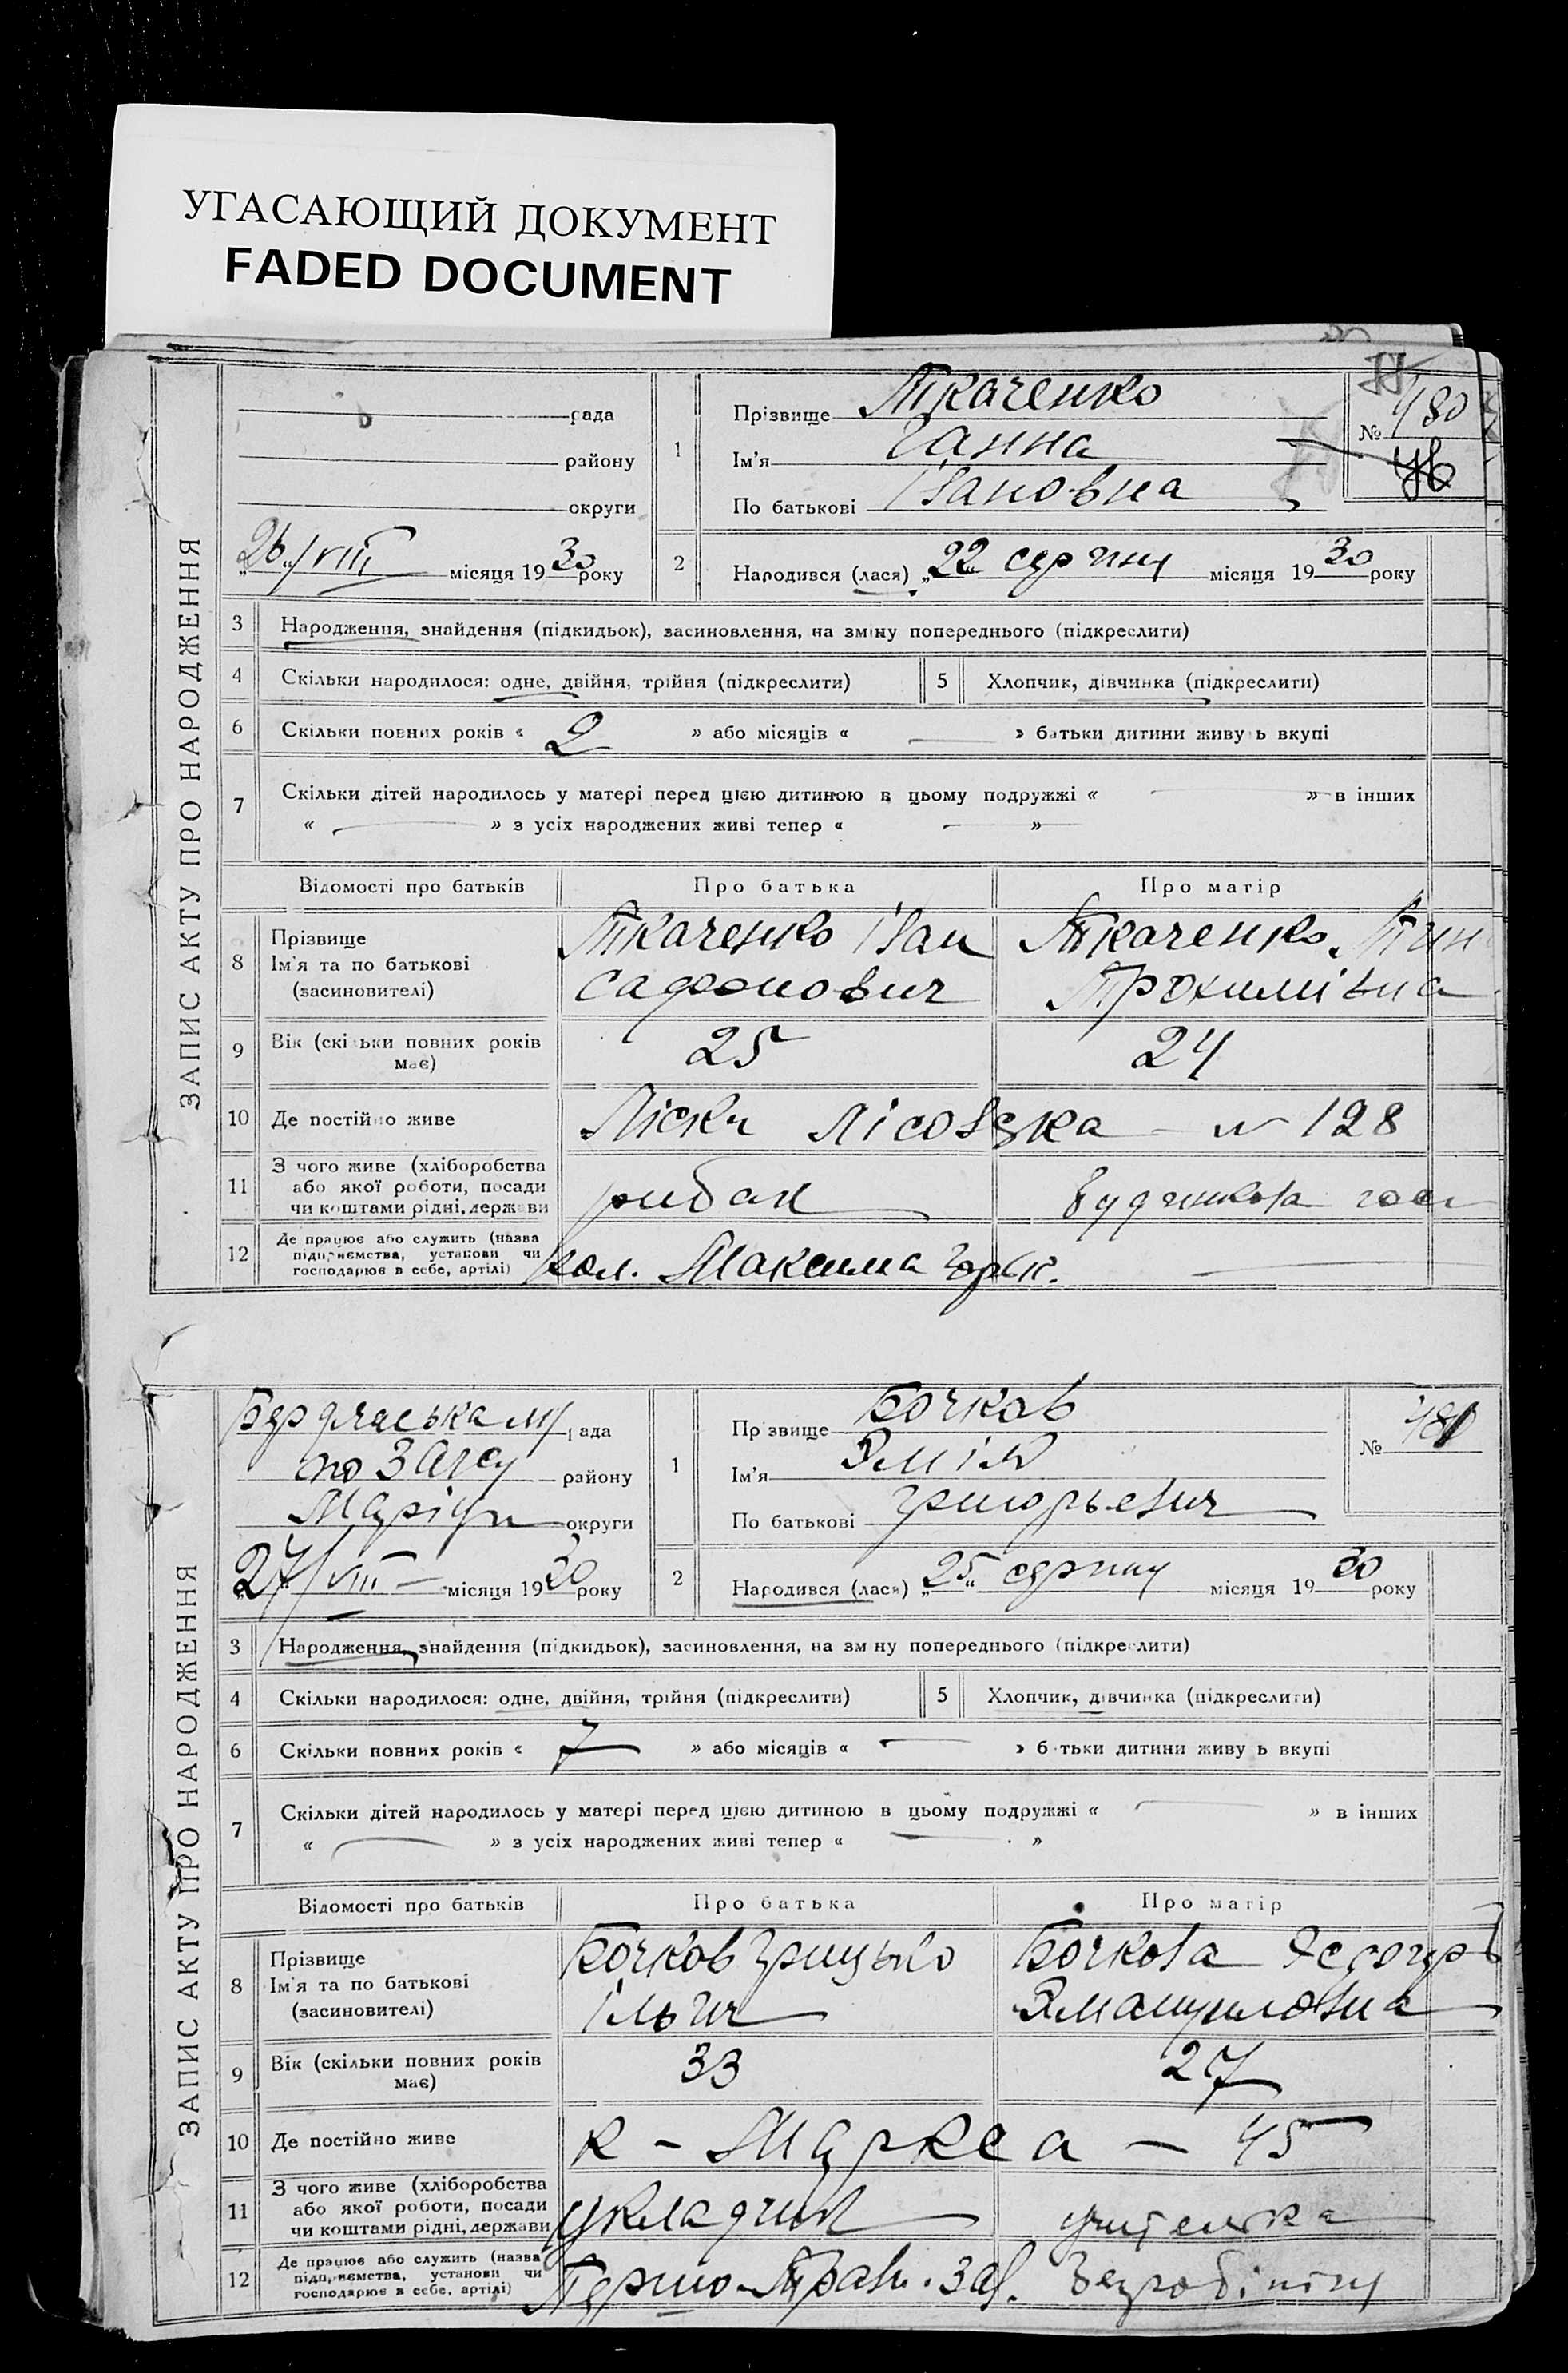 УГАСАЮЩИЙ ДОКУМЕНТ
FADED DOCUMENT
ЗАПИС АКТУ ПРО НАРОДЖЕННЯ
рада
району
округи
„26“/VIII місяця 1930 року
1
Прізвище Ткаченко
Ім'я Ганна
По батькові Івановна
№ 480
46
2
Народився (лася) „22“ серпня місяця 1930 року
3 Народження, знайдення (підкидьок), засиновлення, на зміну попереднього (підкреслити)
4 Скільки народилося: одне, двійня, трійня (підкреслити) 5 Хлопчик, дівчинка (підкреслити)
6 Скільки повних років « 2 » або місяців « — » батьки дитини живу ь вкупі
7 Скільки дітей народилось у матері перед цією дитиною в цьому подружжі « — » в інших
« — » з усіх народжених живі тепер « — »
Відомості про батьків Про батька Про матір
8 Прізвище
Ім'я та по батькові
(засиновителі)
Ткаченко Іван
Сафонович
Ткаченко
Трохимівна
9 Вік (скільки повних років
має)
25 24
10 Де постійно живе Ліски Лісовська № 128
11 З чого живе (хліборобства
або якої роботи, посади
чи коштами рідні, держави
рибак
12 Де працює або служить (назва
підприємства, установи чи
господарює в себе, артілі)
Кол. Максима Горьк.
ЗАПИС АКТУ ПРО НАРОДЖЕННЯ
Бердянська м рада
по Загсу району
Маріуп округи
„27“/VIII місяця 1930 року
1
Прізвище Бочков
Ім'я Эмік
По батькові Григорьевич
№ 481
2
Народився (лася) „25“ серпня місяця 1930 року
3 Народження, знайдення (підкидьок), засиновлення, на зміну попереднього (підкреслити)
4 Скільки народилося: одне, двійня, трійня (підкреслити) 5 Хлопчик, дівчинка (підкреслити)
6 Скільки повних років « 7 » або місяців « — » батьки дитини живу ь вкупі
7 Скільки дітей народилось у матері перед цією дитиною в цьому подружжі « — » в інших
« — » з усіх народжених живі тепер « — »
Відомості про батьків Про батька Про матір
8 Прізвище
Ім'я та по батькові
(засиновителі)
Бочков Грицько
Ільич
Бочкова
Эмануиловна
9 Вік (скільки повних років
має)
33 27
10 Де постійно живе К - Маркса — 45
11 З чого живе (хліборобства
або якої роботи, посади
чи коштами рідні, держави
укладчик учителька
12 Де працює або служить (назва
підприємства, установи чи
господарює в себе, артілі)
Першо-Травн. зав. безробітну